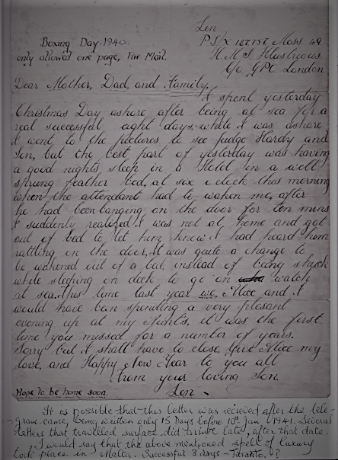 Len
Boxing Day 1940.
only allowed one page, Air Mail.
Mess 49
H.M.S. Illustrious
C/o GPO London
Dear Mother, Dad, and Family,
I spent yesterday
Christmas Day ashore after being at sea for a
real successful eight days, while I was ashore
I went to the pictures to see Judge Hardy and
Son, but the best part of yesterday was having
a good nights sleep in a Hotel in a well
sprung feather bed, at six o clock this morning
when the attendant had to waken me, after
he had been banging on the door for ten mins
I suddenly realized I was not at home and got
out of bed to let him know I had heard him
rattling on the door, it was quite a change to
be wakened out of a bed, instead of being shook
while sleeping on deck to go on watch
at sea. this time last year we, Alice and I
would have been spending a very plesant
evening up at my Aunt's, it was the first
time you missed for a number of years.
Sorry but I shall have to close, give Alice my
love, and Happy New Year to you all
from your loving Son,
Hope to be home soon. Len.
It is possible that this letter was received after the tele-
gram came, being written only 15 Days before 10th Jan 1941. Several
letters that travelled surface did arrive late, after that date.
I would say that the above mentioned spell of luxury
took place in Malta. Successful 8 days - Taranto,